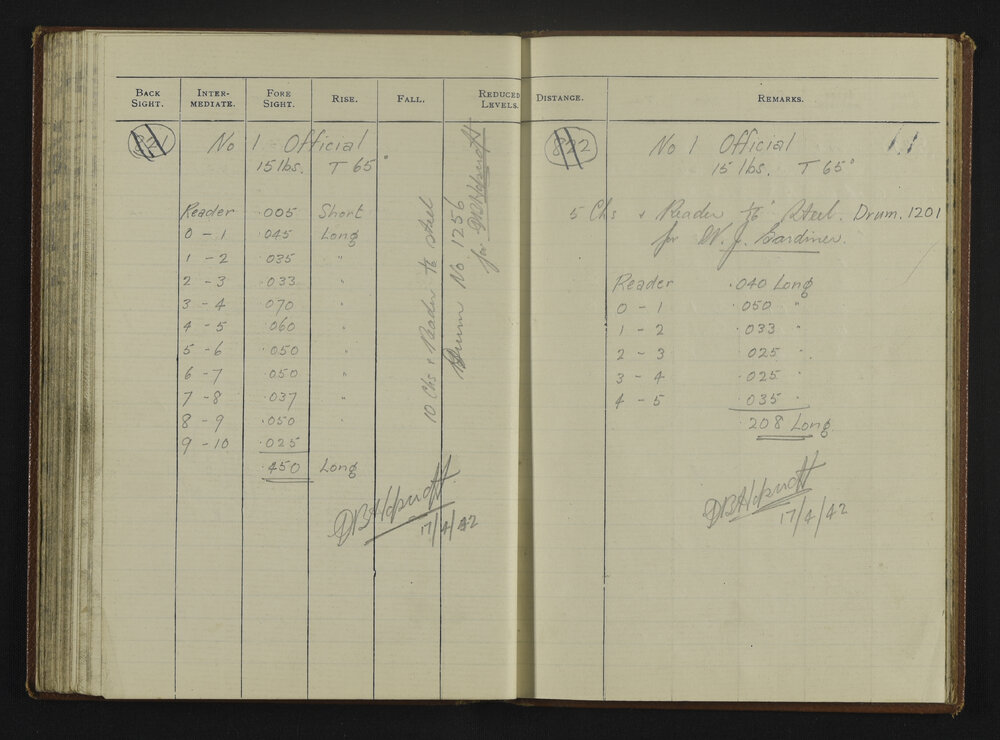 BACK SIGHT. INTER-MEDIATE. FORE SIGHT. RISE. FALL. REDUCED LEVELS.
821 No 1 Official
15 lbs. T 65°
Reader .005 Short
0 - 1 .045 Long
1 - 2 .035 "
2 - 3 .033 "
3 - 4 .070 "
4 - 5 .060 "
5 - 6 .050 "
6 - 7 .050 "
7 - 8 .037 "
8 - 9 .050 "
9 - 10 .025
.450 Long
10 Chs & Reader steel
Drum No 1256
for
17/4/42
DISTANCE. REMARKS.
822 No 1 Official 1.1
15 lbs. T 65°
5 Chs & Reader Steel. Drum. 1201
for W. J. Gardiner.
Reader .040 Long
0 - 1 .050 "
1 - 2 .033 "
2 - 3 .025 "
3 - 4 .025 "
4 - 5 .035 "
.208 Long
17/4/42